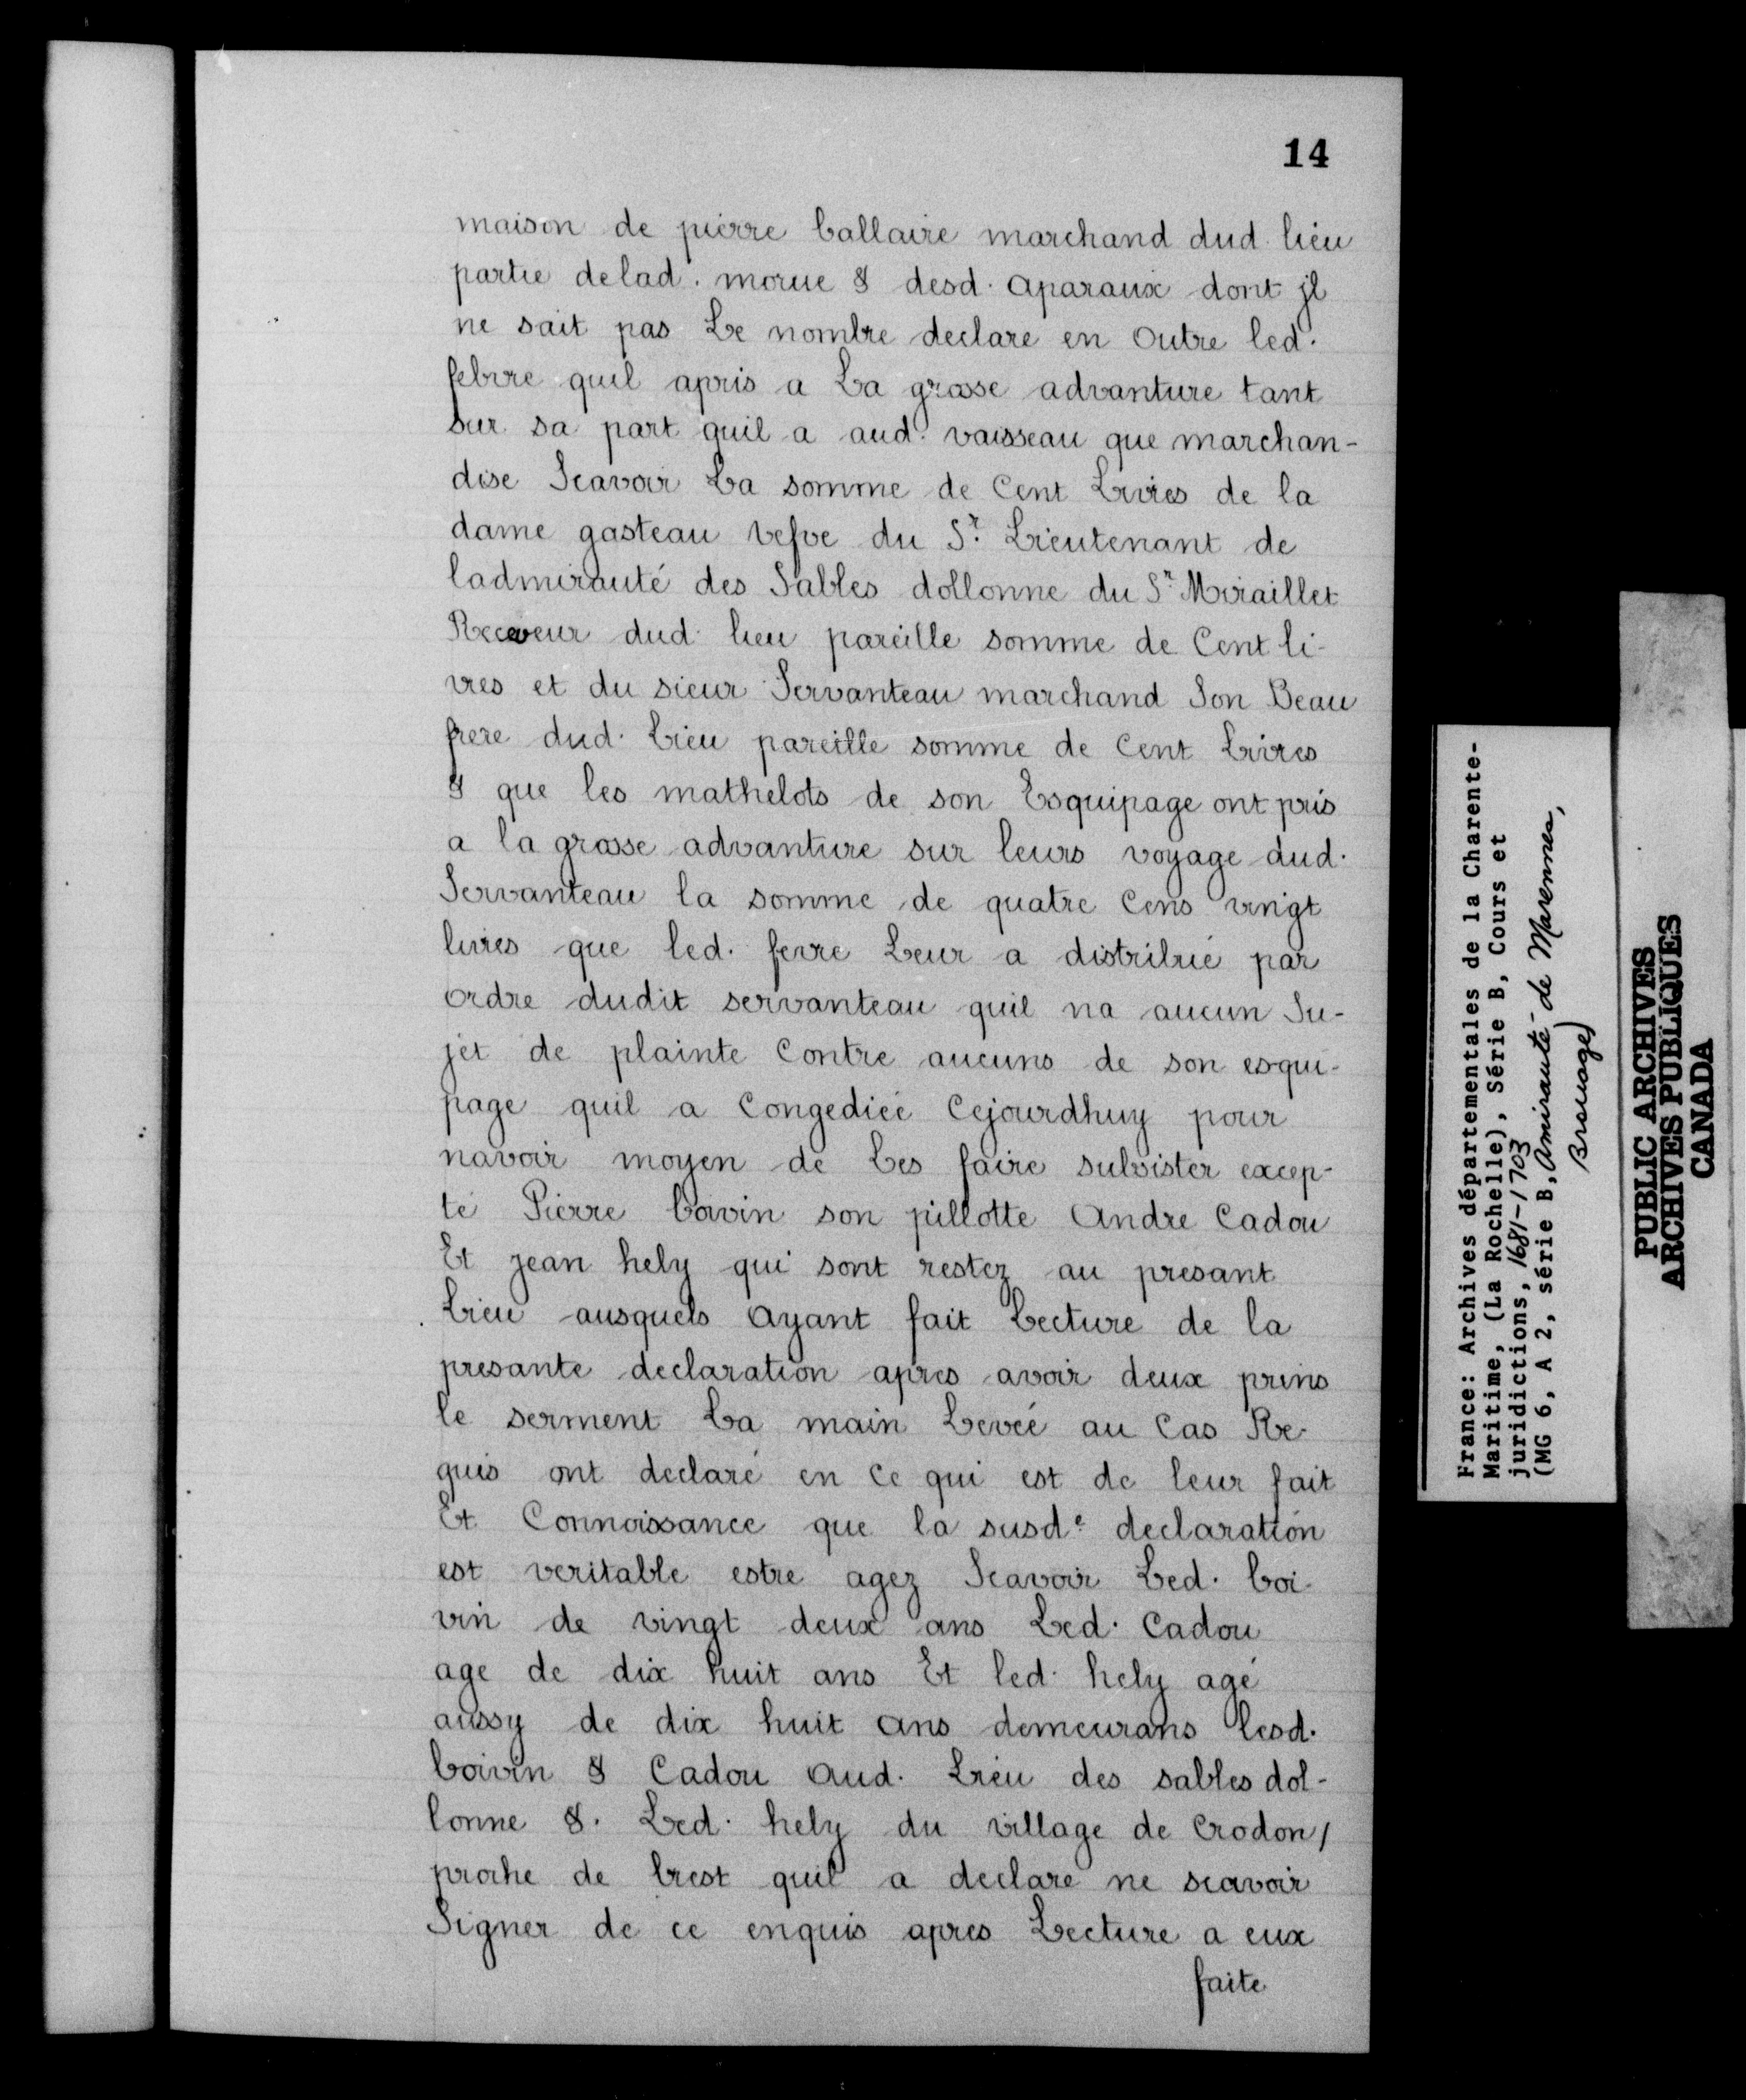 14
maison de pierre ballaire marchand dud. lieu
partie delad. morue & desd. aparaux dont jl
ne sait pas Le nombre declare en outre led.
febvre quil apris a La grosse advanture tant
sur sa part quil a aud. vaisseau que marchan-
dise Scavoir La somme de Cent Livres de la
dame gasteau vefve du Sr. Lieutenant de
ladmirauté des Sables dollonne du Sr Miraillet
Receveur dud. lieu pareille somme de Cent li-
vres et du sieur Servanteau marchand Son Beau
frere dud. Lieu pareille somme de Cent Livres
& que les mathelots de son Esquipage ont pris
a la grosse advanture sur leurs voyage dud.
Servanteau la somme de quatre Cens vingt
livres que led. fevre Leur a distribué par
ordre dudit servanteau quil na aucun Su-
jet de plainte Contre aucuns de son esqui-
page quil a Congediéé Cejourdhuy pour
navoir moyen de Les faire subvister excep-
té Pierre boivin son pillotte Andre Cadou
Et jean hely qui sont restez au presant
Lieu ausquels Ayant fait Lecture de la
presante declaration apres avoir deux prins
le serment La main Levéé au Cas Re-
quis ont declaré en Ce qui est de leur fait
Et Connoissance que la susde. declaration
est veritable estre agez Scavoir Led. boi-
vin de vingt deux ans Led. Cadou
age de dix huit ans Et led. hely agé
aussy de dix huit ans demeurans lesd.
boivin & Cadou Aud. Lieu des sables dol-
lonne &. Led. hely du village de Crodon/
proche de brest quil a declare ne scavoir
Signer de ce enquis apres Lecture a eux
faite
France: Archives départementales de la Charente-
Maritime, (La Rochelle), Série B, Cours et
juridictions, 1681-1703
(MG 6, A 2, série B, Amirauté de Marennes,
Brouage)
PUBLIC ARCHIVES
ARCHIVES PUBLIQUES
CANADA